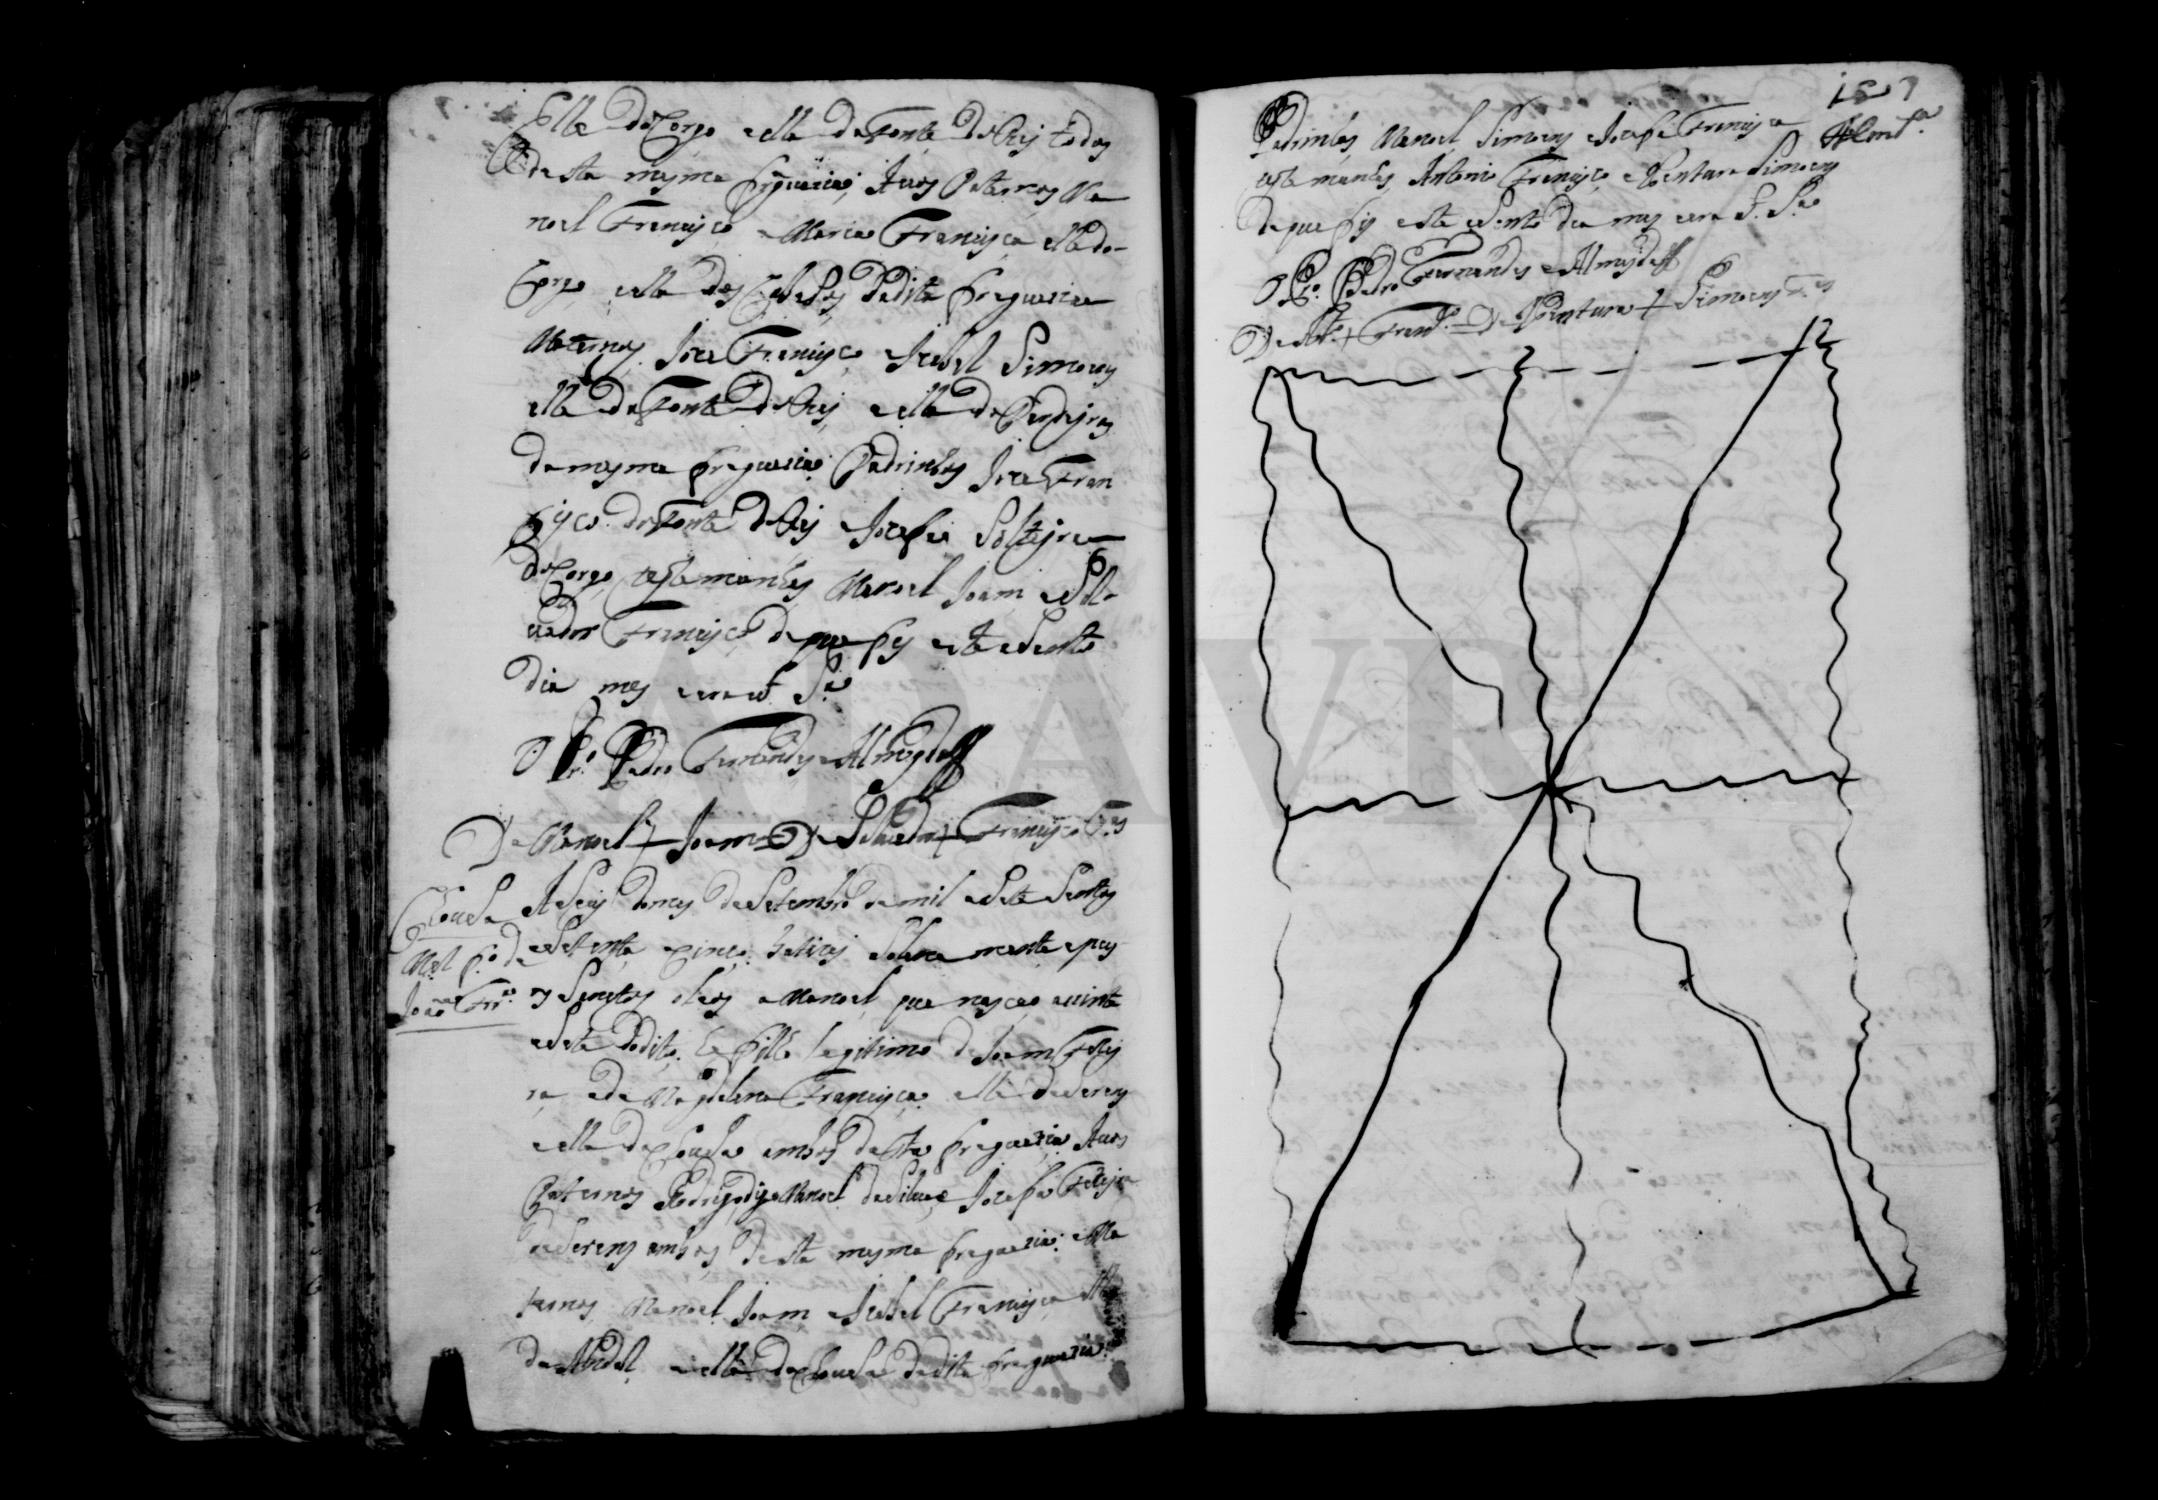 Elle do Corgo e ella da Fonte de Reij todos
desta mesma freguezia, Avos Paternos Ma
noel Francisco e Maria Francisca elle do
Corgo e ella das da dita freguezia
Maternos Joze Francisco e Izabel Simoens
elle da Fonte de Reij e ella da
da mesma freguezia Padrinhos Joze Fran
cisco da Fonte de Reij e Jozefa Solteyra
do Corgo testemunhas Manoel Joam e Sal
vador Francisco de que fis este asento
dia mes era ut S.ª
O P.e Pedro Fernandes e Almeyda
De Manoel + Joam De Salvador + Francisco
Chousa
M.el f.o de
João Frr.a
A Seis do mes de Setembro de mil e Sete Sentos
e Setenta e cinco batizei Solene mente e pus
os Santos oleos a Manoel que nasceo a vinte
e Sete do dito he filho legitimo de Joam Ferrey
ra e de Magdalena Francisca elle de Serem
e ella da Chousa ambos desta freguezia Avos
Paternos digo Manoel da Silva e Jozefa Ferreyra
de Serem ambos desta mesma freguezia e Ma
ternos Manoel Joam e Izabel Francisca elle
de e ella da Chousa da dita freguezia
Padrinhos Manoel Simoens e Jozefa Francisca
testemunhas Antonio Francisco e Ventura Simoens
de que fis este asento dia mes era S.ª
O P.e Pedro Fernandes e Almeyda
De Ant.o + Fran.co De Ventura + Simoens